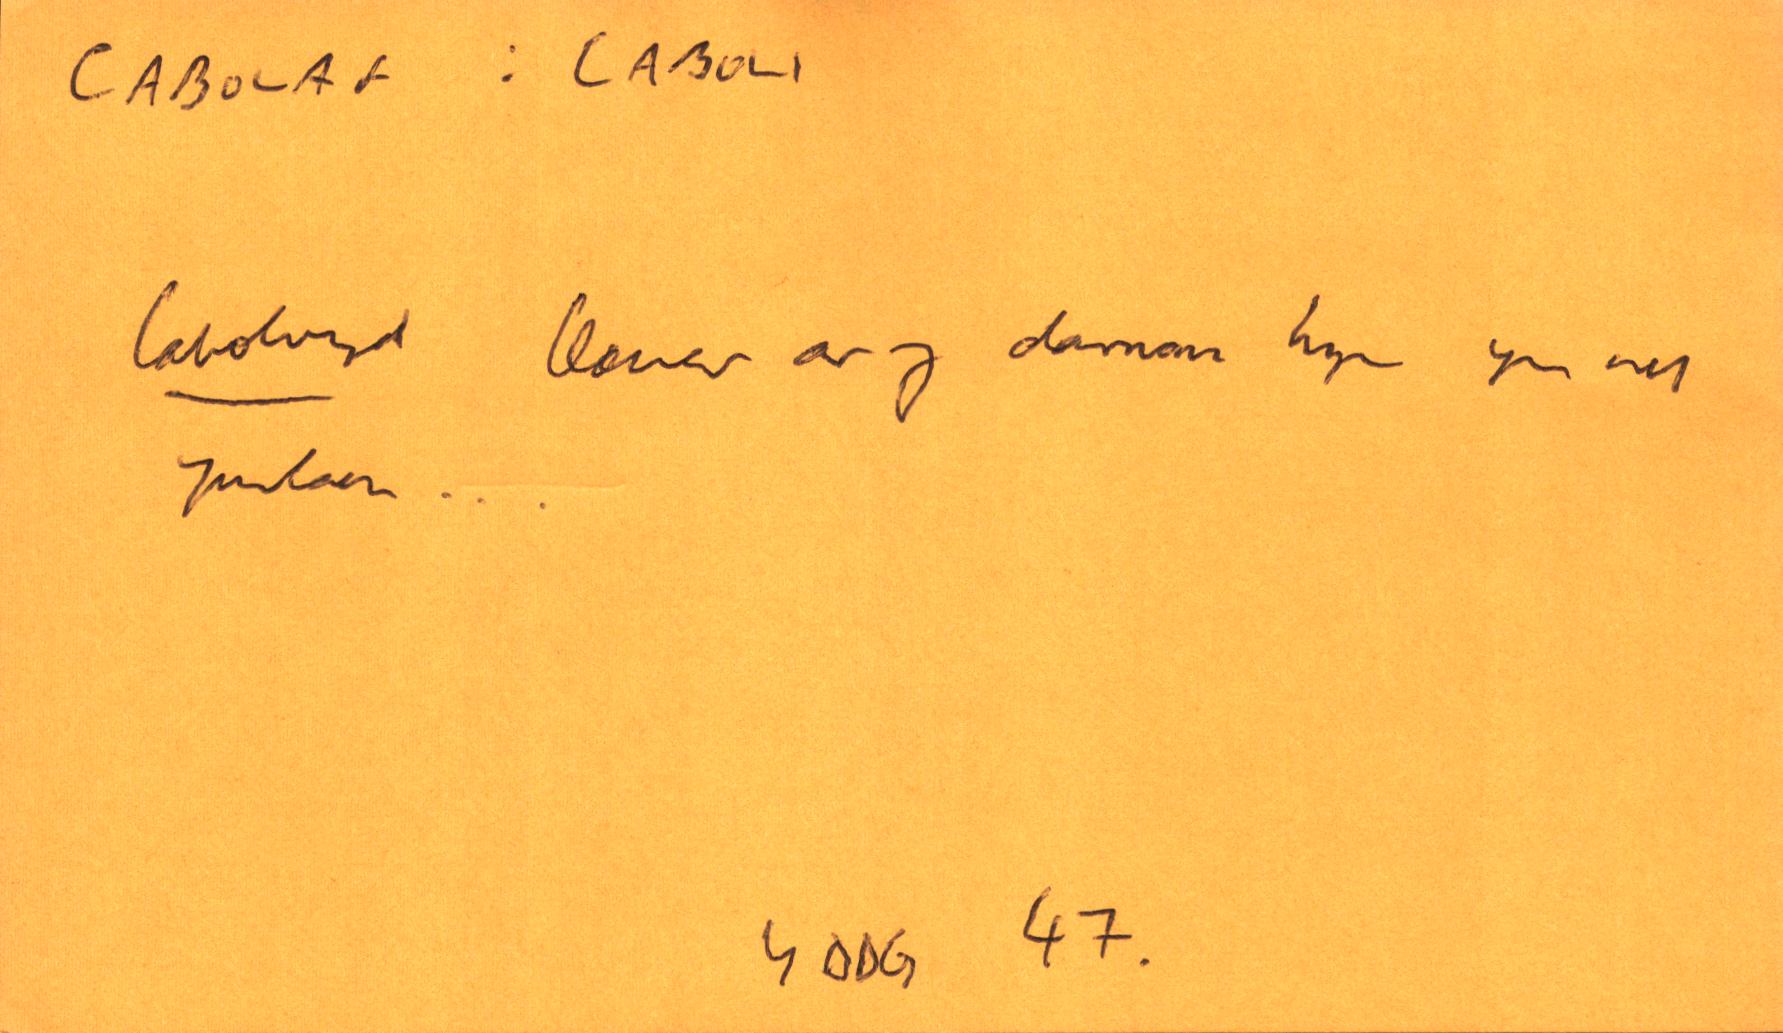 CABOLAF : CABOLI
Cabolwyd llawer ar y darnau hyn yn
Y DDG 47.